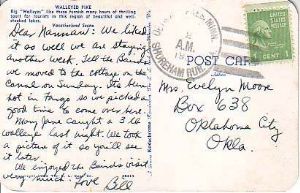 WALLEYED PIKE
Big "Walleyes" like these furnish many hours of thrilling
sport for tourists in this region of beautiful and well
stocked lakes.
Dear Nannaw: We like
it so well we are staying
another week. Tell the Bairds
we moved to the cottage on the
Canal on Sunday. It's been
hot in Fargo so we picked a
good time to come over here.
Mary Jane caught a 3 lb
walleye last night. We took
a picture of it so you'll see
it later.
We enjoyed the Bairds visit
very much. Love Bill
A.M.
SHOREHAM RUR.
POST CARD
1 CENT
Mrs. Evelyn Moon
Box 638
Oklahoma City
Okla.